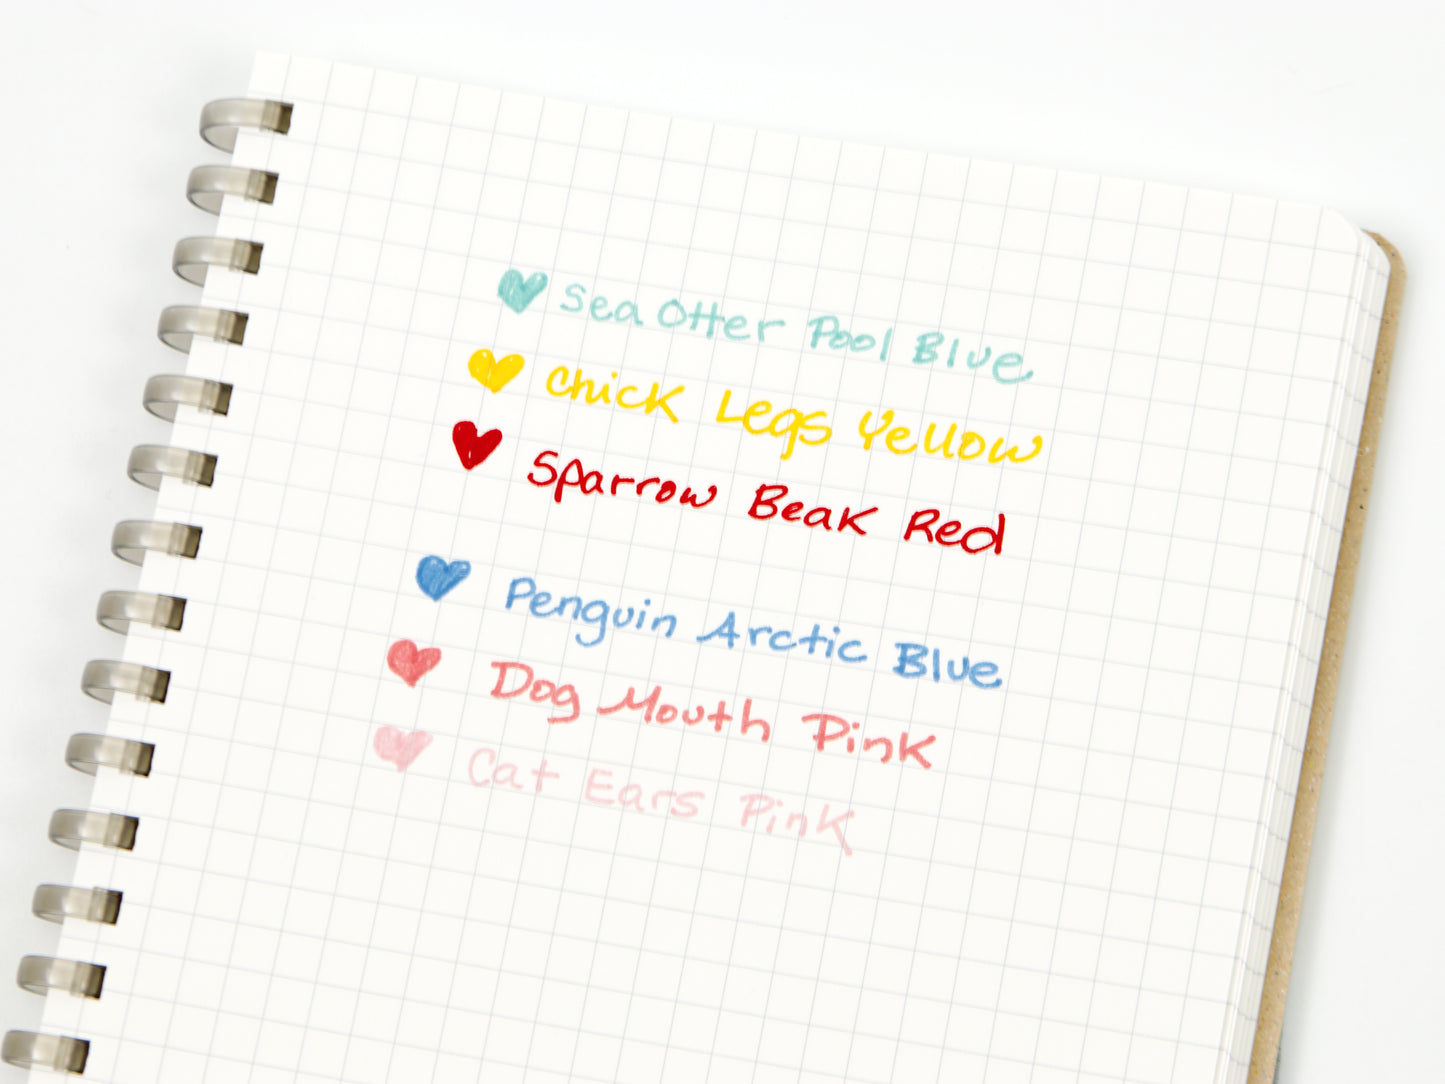 Sea Otter Pool Blue
Chick Legs Yellow
Sparrow Beak Red
Penguin Arctic Blue
Dog Mouth Pink
Cat Ears Pink